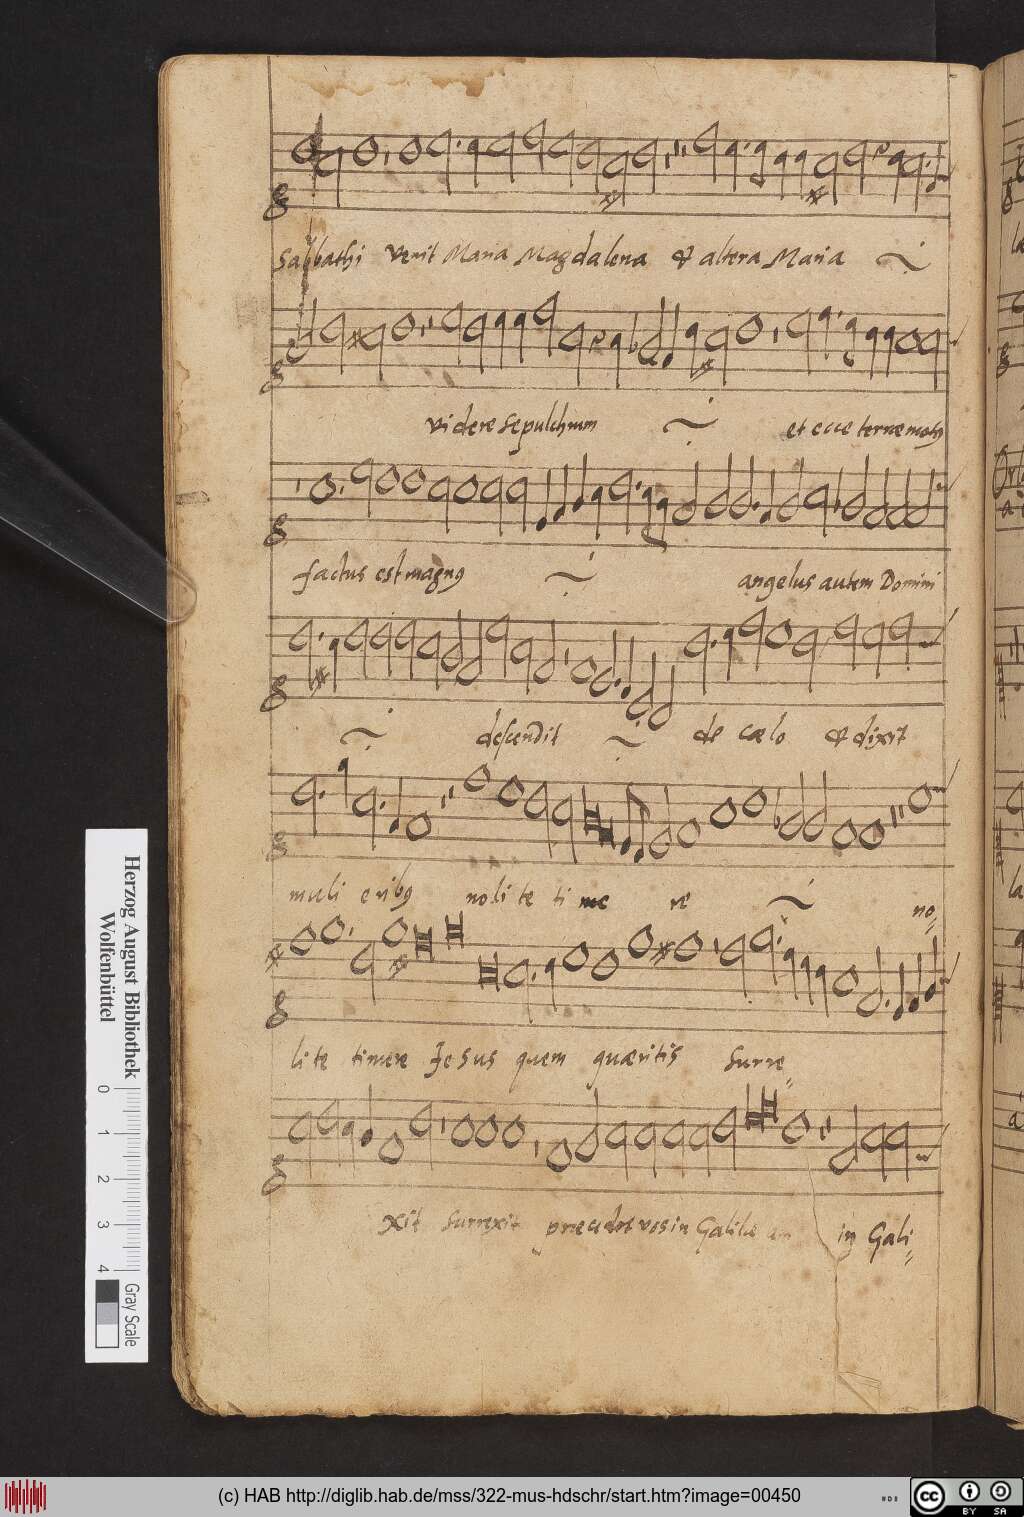 Sabbathi venit Maria Magdalena & altera Maria
videre sepulchrum et ecce terræ motꝰ
factus est magnꝰ angelus autem Domini
descendit de cælo & dixit
muli eribꝰ nolite ti me re no=
lite timere Jesus quem quæritis Surre=
xit Surrexit præcedet vos in Galileam in Gali=
Herzog August Bibliothek
Wolfenbüttel
0 1 2 3 4
Gray Scale
(c) HAB http://diglib.hab.de/mss/322-mus-hdschr/start.htm?image=00450
cc BY SA